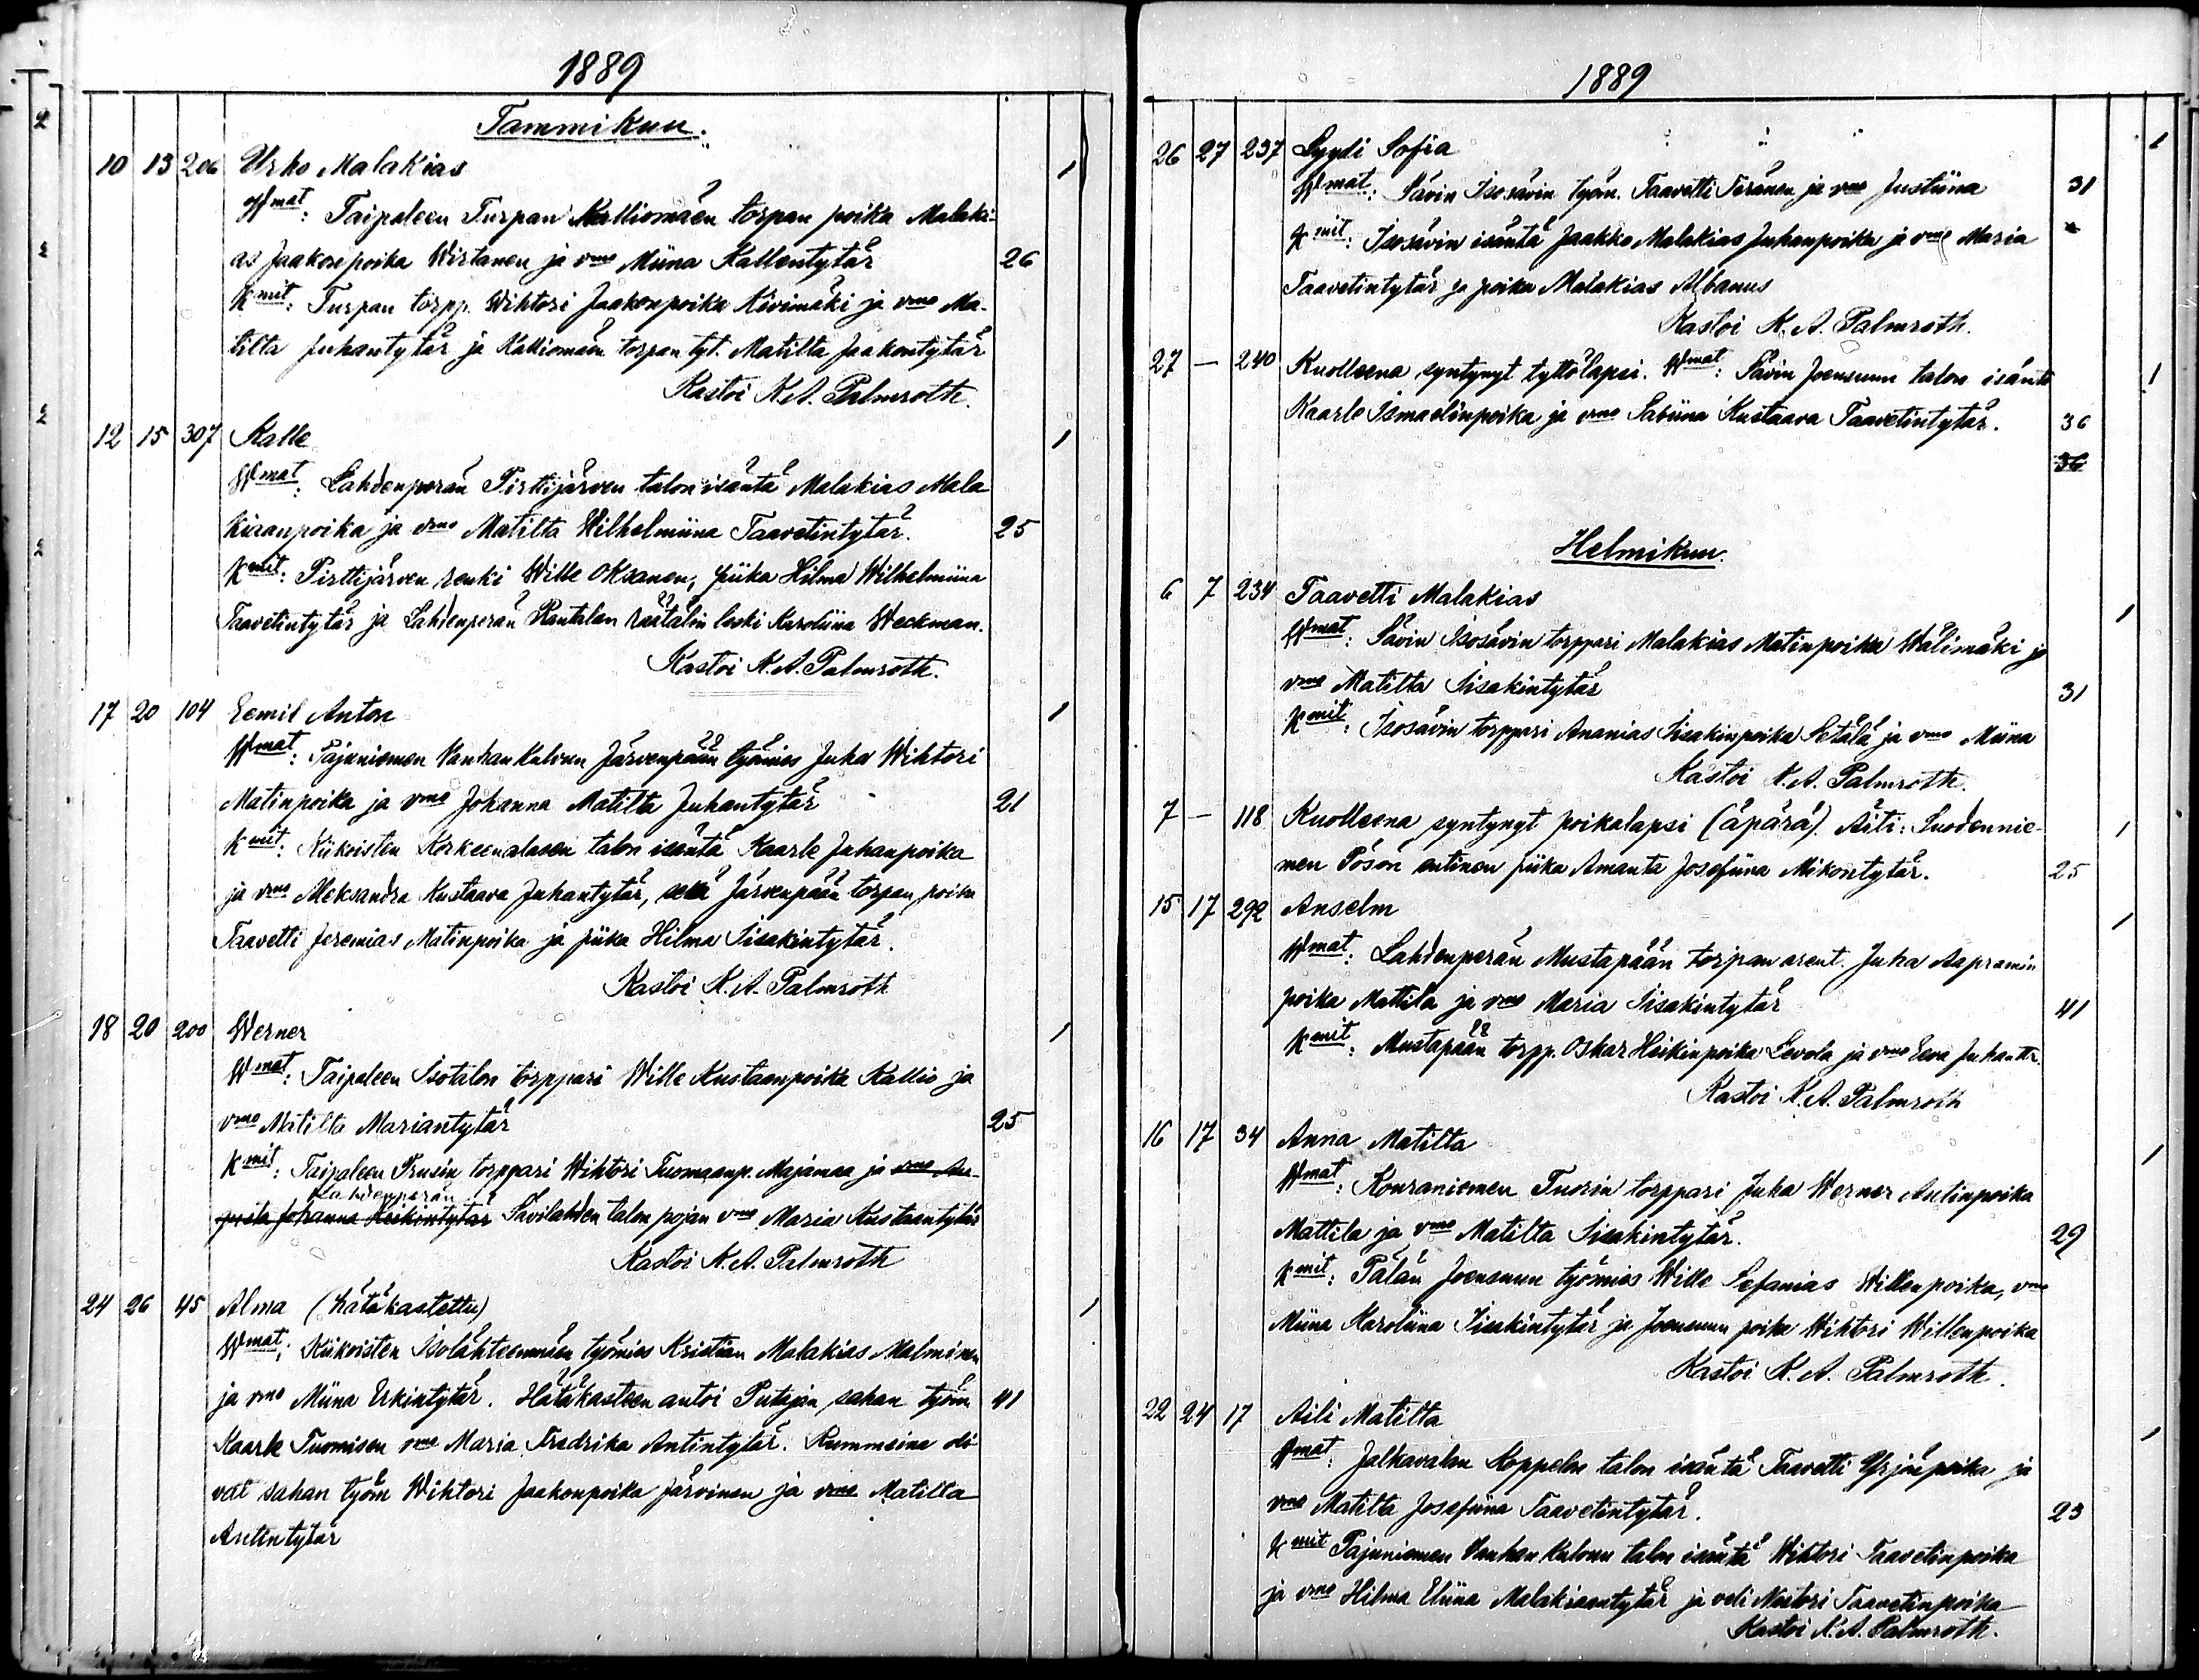 1889
Tammikuu.
10 13 206 Urho Malakias 1
Wmat: Taipaleen Turpan Kalliomäen torpan poika Malaki-
as Jaakonpoika Wirtanen ja vmo Miina Kallentytär 26
Kmit: Turpan torpp. Wihtori Jaakonpoika Kivimäki ja vmo Ma-
tilta Juhantytär ja Kalliomäen torpan tyt. Matilta Jaakontytär
Kastoi K.A. Palmroth.
12 15 307 Kalle 1
Wmat: Lahdenperän Pirttijärven talon isäntä Malakias Mala
kiaanpoika ja vmo Matilta Wilhelmiina Taavetintytär. 25
Kmit: Pirttijärven renki Wille Oksanen, piika Hilma Wilhelmiina
Taavetintytär ja Lahdenperän Rantalan räätälin leski Karoliina Weckman.
Kastoi K.A. Palmroth.
17 20 104 Eemil Anton 1
Wmat: Pajuniemen Vanhankulvun Järvenpään työmies Juha Wihtori
Matinpoika ja vmo Johanna Matilta Juhantytär 21
Kmit: Kiikoisten Korkeenalasen talon isäntä Kaarle Juhanpoika
ja vmo Aleksandra Kustaava Juhantytär, sekä Järvenpään torpan poika
Taavetti Jeremias Matinpoika ja piika Hilma Iisakintytär.
Kastoi K.A. Palmroth
18 20 200 Werner 1
Wmat: Taipaleen Isotalon torppari Wille Kustaanpoika Kallio ja
vmo Matilta Mariantytär 25
Kmit: Taipaleen Prusin torppari Wihtori Tuomaanp. Majamaa ja vmo Au-
Lahdenperän
gusta Johanna Heikintytär Savilahden talon pojan vmo Maria Kustaantytär
Kastoi K.A. Palmroth
24 26 45 Alma (hätäkastettu) 1
Wmat: Kiikoisten Isolähteenmäen työmies Kristian Malakias Malminen
ja vmo Miina Erkintytär. Hätäkasteen antoi Putajan sahan työm 41
Kaarle Tuomisen vmo Maria Fredrika Antintytär. Kummeina oli-
vat sahan työm Wihtori Jaakonpoika Järvinen ja vmo Matilta
Antintytär
1889
26 27 237 Lyydi Sofia 1
Wmat: Sävin Isosävin työm. Taavetti Teränen ja vmo Justiina 31
Kmit: Isosävin isäntä Jaakko Malakias Juhanpoika ja vmo Maria
Taavetintytär ja poika Malakias Albanus
Kastoi K.A. Palmroth.
27 — 240 Kuolleena syntynyt tyttölapsi. Wmat: Sävin Joensuun talon isäntä 1
Kaarle Ismaelinpoika ja vmo Sabiina Kustaava Taavetintytär. 36
36
Helmikuu.
6 7 234 Taavetti Malakias 1
Wmat: Sävin Isosävin torppari Malakias Matinpoika Wälimäki ja
vmo Matilta Iisakintytär 31
Kmit: Isosävin torppari Ananias Iisakinpoika Setälä ja vmo Miina
Kastoi K.A. Palmroth.
7 — 118 Kuolleena syntynyt poikalapsi (äpärä). Äiti: Suodennie- 1
men Pösön entinen piika Amanta Josefiina Mikontytär. 25
15 17 292 Anselm 1
Wmat: Lahdenperän Mustapään torpan arent. Juha Aapramin
poika Mattila ja vmo Maria Iisakintytär 41
Kmit: Mustapään torpp. Oskar Heikinpoika Levola ja vmo Eeva Juhantr.
Kastoi K.A. Palmroth
16 17 34 Anna Matilta 1
Wmat: Kouraniemen Tuorin torppari Juha Werner Antinpoika
Mattila ja vmo Matilta Iisakintytär. 29
Kmit: Pälän Joensuun työmies Wille Sefanias Willenpoika, vmo
Miina Karoliina Iisakintytär ja Joensuun poika Wihtori Willenpoika
Kastoi K.A. Palmroth.
22 24 17 Aili Matilta 1
Wmat: Jalkavalan Koppelon talon isäntä Taavetti Yrjönpoika ja
vmo Matilta Josefiina Taavetintytär. 23
Kmit Pajuniemen Vanhankulvun talon isäntä Wihtori Taavetinpoika
ja vmo Hilma Eliina Malakiaantytär ja veli Nestori Taavetinpoika
Kastoi K.A. Palmroth.